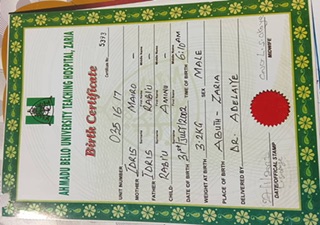 AHMADU BELLO UNIVERSITY TEACHING HOSPITAL, ZARIA
5393
Birth Certificate
UNIT NUMBER 035 16 17
MOTHER IDRIS MAIRO
FATHER IDRIS RABIU
CHILD RABIU AMINU
DATE OF BIRTH 31st JULY 2002 TIME OF BIRTH 6:10AM
WEIGHT AT BIRTH 3.2KG SEX MALE
PLACE OF BIRTH ABUTH - ZARIA
DELIVERED BY DR. ADELAIYE
DATE/OFFICIAL STAMP
MIDWIFE